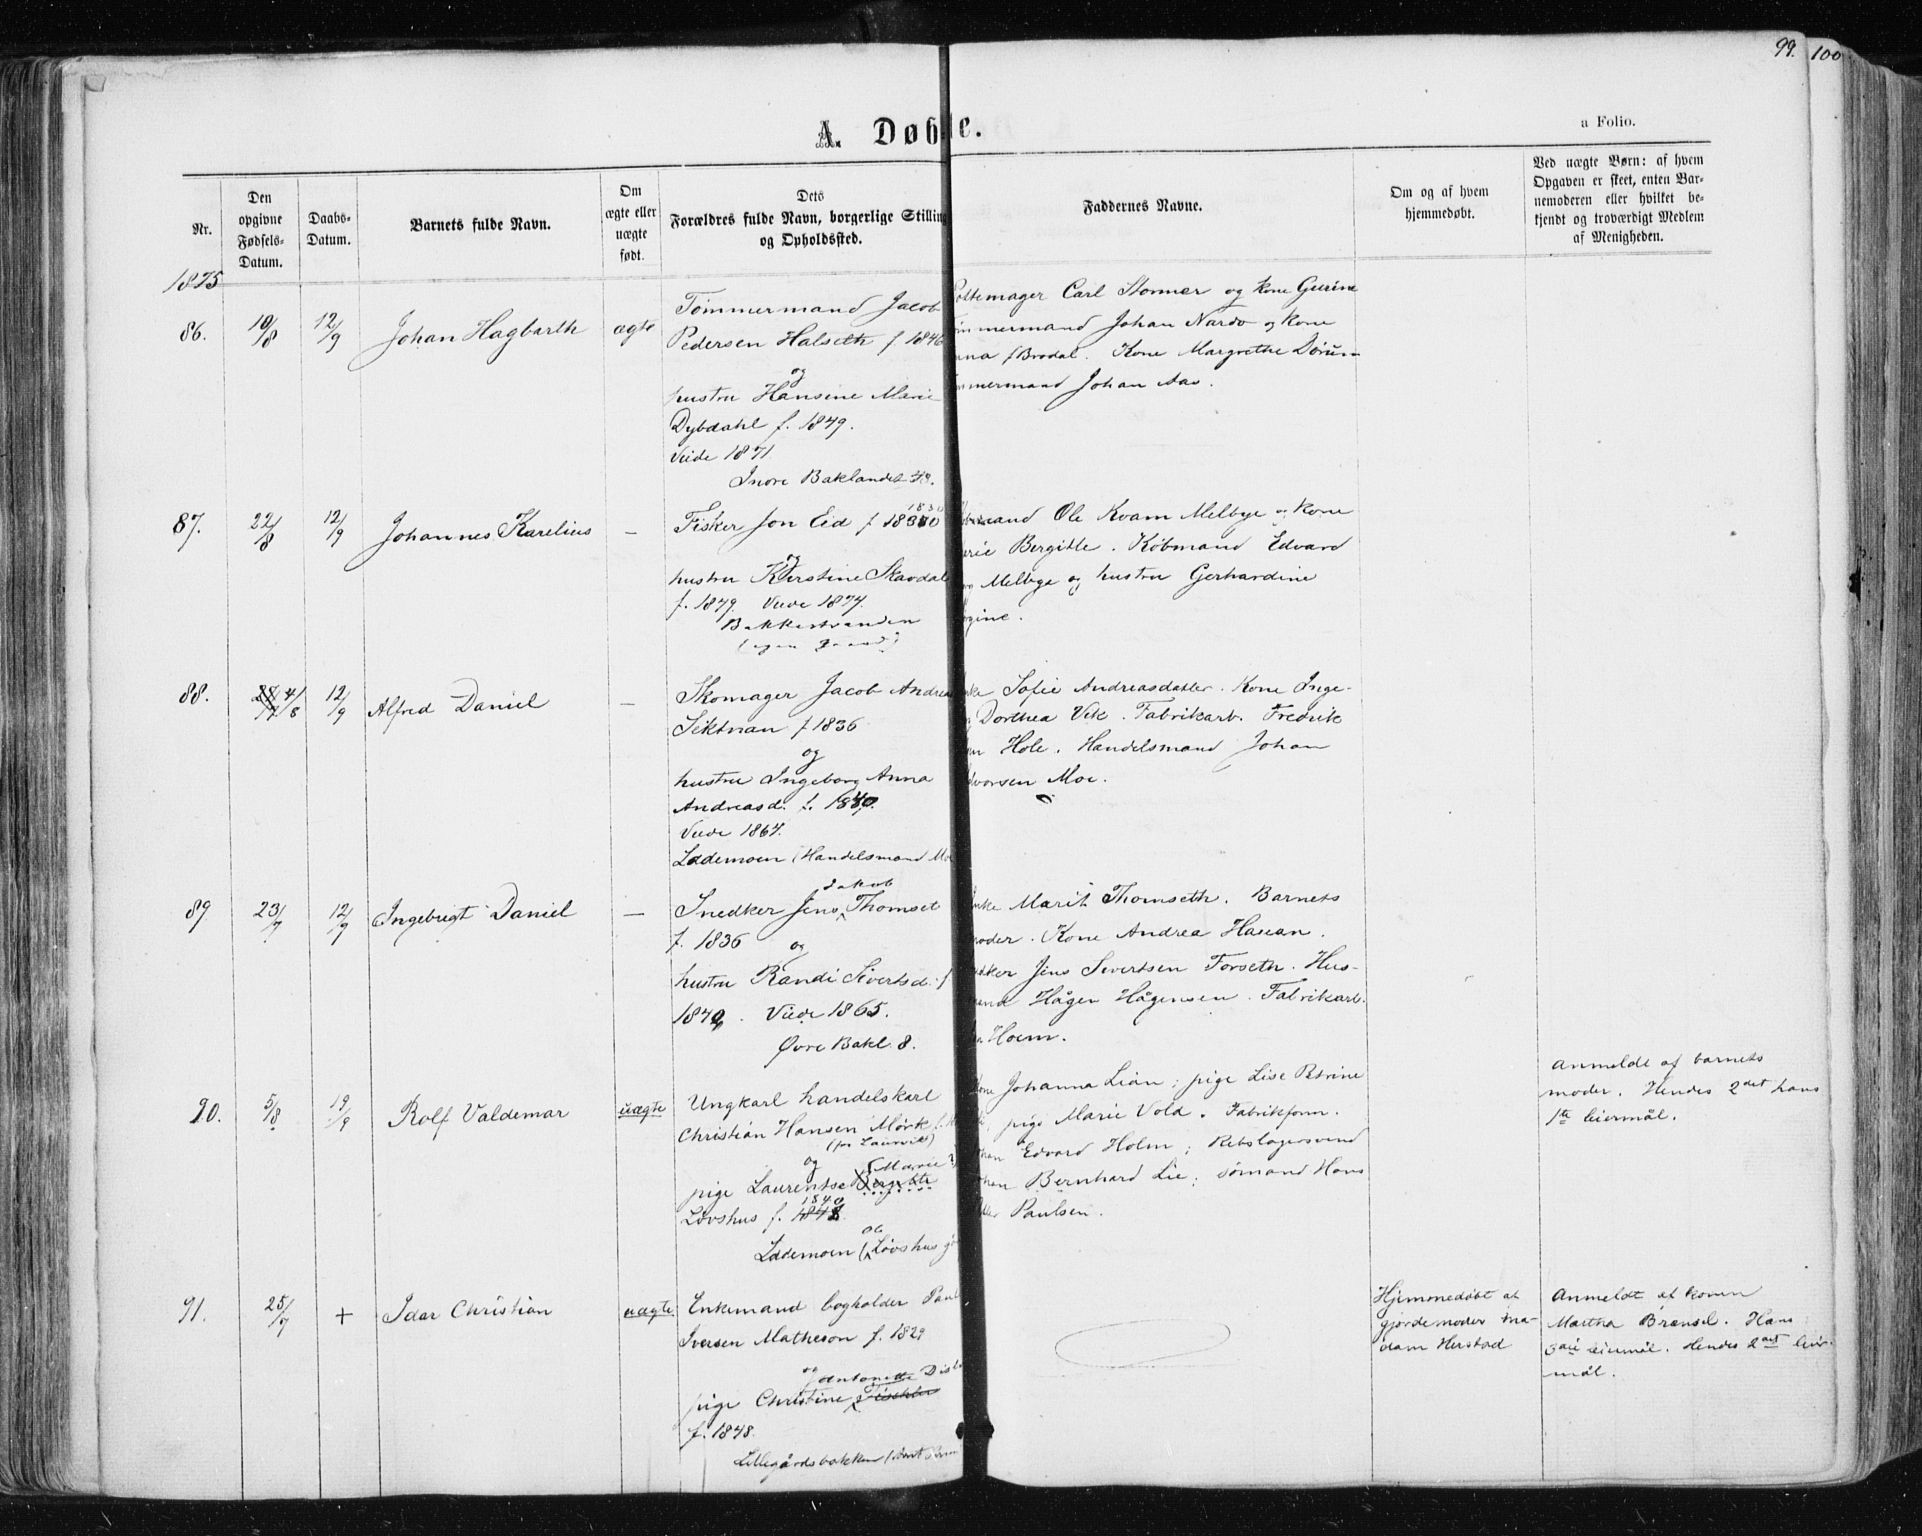 99. 100
A. Døbte.
a Folio.
Nr.
Den opgivne Fødsels-Datum.
Daabs-Datum.
Barnets fulde Navn.
Om ægte eller uægte født.
Dets Forældres fulde Navn, borgerlige Stilling og Opholdssted.
Faddernes Navne.
Om og af hvem hjemmedøbt.
Ved uægte Børn: af hvem Opgaven er skeet, enten Barnemoderen eller hvilket bekjendt og troværdigt Medlem af Menigheden.
1875
86. 10/8 12/9 Johan Hagbarth ægte
Tömmermand Jacob
Pedersen Halseth f 1846
og
hustru Hansine Marie
Dybdahl f. 1849.
Viede 1871.
Indre Baklandet 43.
ottemager Carl Stormer og kone Gurine
mmermand Johan Nardo og kone
nna f Brodal. Kone Margrethe Dörum
mmermand Johan Aas.
87. 22/8 12/9 Johannes Karelius —
1830
Fisker Jon Eid f
og
hustru Kirstine Skavdal
f. 1849. Viede 1874.
Bakkestranden
(egen gaard)
mand Ole Kvam Melbye og kone
erie Bergitte. Købmand Edvard
Melbye og hustru Gerhardine
gine.
88. 4/8 12/9 Alfred Daniel —
Skomager Jacob Andreas
Siktnan f 1836
og
hustru Ingeborg Anna
Andreasd. f. 1840.
Viede 1864.
Lademoen (Handelsmand Mo
nke Sofie Andreasdatter. Kone Inge-
g Dorthea Vik. Fabrikarb. Fredrik
en Hole. Handelsmand Johan
dvorsen Moe.
89 23/7 12/9 Ingebrigt Daniel —
Jakob
Snedker Jens Thomset
f. 1836 og
hustru Randi Sivertsd. f
1840. Viede 1865.
Øvre Bakl. 8.
nke Marit Thomseth. Barnets
moder. Kone Andrea Hasean.
dker Jens Sivertsen Forseth. Hus-
mand Hågen Hågensen. Fabrikarb.
Hoem.
90. 5/8 19/9 Rolf Valdemar uægte
Ungkarl handelskarl
Christian Hansen Mörk f.
(fra Laurvik)
og (Marie?)
pige Laurentse Bergitte
1840
Lövshus f. 1848
Lademoen (Lövshus
one Johanna Lian; pige Lise Petrine
pige Marie Vold. Fabrikform.
ohan Edvard Holm; Rebslagersvend
ohan Bernhard Lie; sömand Hans
Paulsen.
Anmeldt af barnets
moder. Hendes 2det hans
1te leiermål.
91. 25/7 + Idar Christian uægte
Enkemand bogholder Paul
Iversen Matheson f. 1829
og Antonette Dist
pige Christine
f. 1848.
Lillegårdsbakken (
Hjemmedöbt af
gjordemoder ma-
dam Herstad
Anmeldt af konen
Martha Brænsel. Hans
3die leiermål. Hendes 2det leier-
mål.